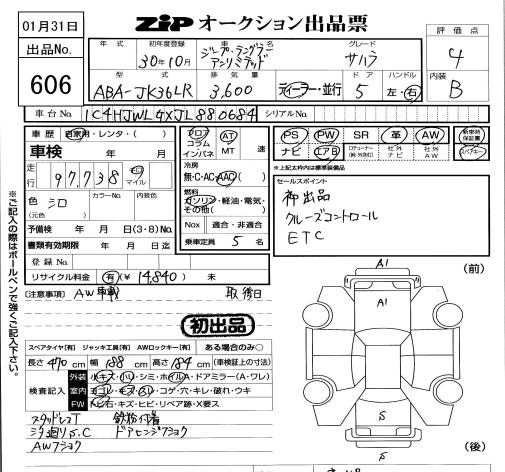 01月31日
ZIP オークション出品票
出品No.
606
評価点
4
内装
B
年式 初年度登録 車名 グレード
30年10月 ジープ・ラングラー アンリミテッド サハラ
型式 排気量 ドア ハンドル
ABA-JK36LR 3,600 ディーラー・並行 5 左・右
車台No. 1C4HJWLGXJL880684 シリアルNo.
車歴 自家用・レンタ・( )
車検 年 月
走行 97,738 キロ マイル
色 シロ (元色) カラーNo. 内装色
予備検 年 月 日(3・8)No.
書類有効期限 年 月 日迄
登録No.
リサイクル料金 有(¥ 14,840) 未
フロア コラム インパネ AT MT 速
冷房
無・C・AC・AAC( )
燃料
ガソリン・軽油・電気・その他( )
Nox 適合・非適合
乗車定員 5 名
PS PW SR 革 AW 新車時保証書
ナビ エアB 社外ナビ 社外AW スペアキー
※上記太枠内は標準装備品
セールスポイント
初出品
クルーズコントロール
ETC
※ご記入の際はボールペンで強くご記入下さい。
[注意事項] 取後日
初出品
スペアタイヤ[有] ジャッキ工具[有] AWロックキー[有] ある場合のみ○
長さ 470 cm 幅 188 cm 高さ 184 cm (車検証上の寸法)
検査記入
外装 小キズ・凹・シミ・ホイル・A・ドアミラー(A・ワレ)
室内 ヨゴレ・キズ・スレ・コゲ・穴・キレ・破れ・ウキ
FW トビ石・キズ・ヒビ・リペア跡・X要ス
スタッドレスT
S.C ドアヒンジフショク
AWフショク
(前)
A1
A1
S
S
(後)